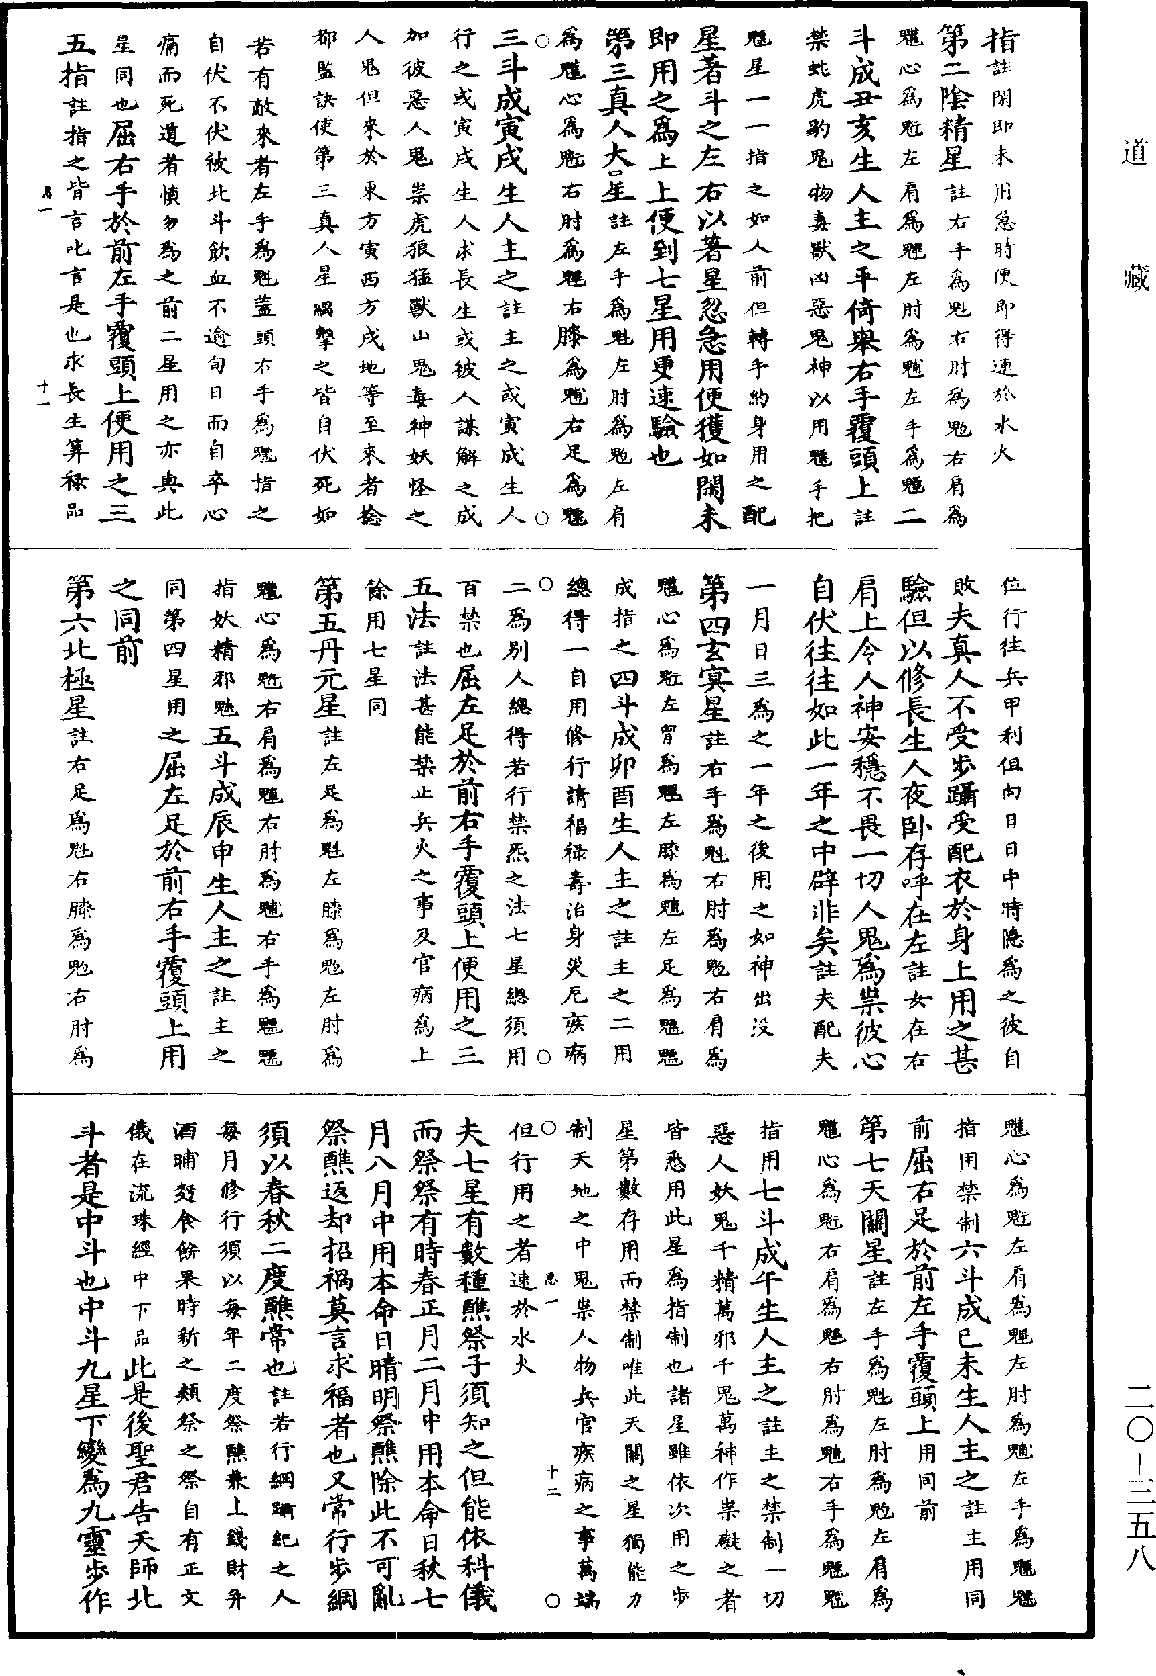 道藏
二〇—三五八
指註閉即未用急時便即得速於水火
第二陰精星註右手為魁右肘為䰢右肩為
䰡心為魓左肩為䰡左肘為魒左手為䰡二
斗成丑亥生人主之平倚舉右手覆頭上註
禁蚍虎豹鬼物毒獸凶惡鬼神以用䰡手把
䰡星一一指之如人前但轉手約身用之配
星著斗之左右以著星忽急用便獲如閉未
即用之為上上便到七星用更速驗也
第三真人大星註左手為魁左肘為䰢左肩
為䰡心為魓右肘為䰡右膝為魒右足為䰡
三斗成寅戌生人主之註主之或寅戌生人
行之或寅戌生人求長生或彼人謀解之成
如彼惡人鬼祟虎狼猛獸山鬼毒神妖怪之
人鬼但來於東方寅西方戌地等至來者捻
都監訣使第三真人星隔擊之皆自伏死如
若有敵來者左手為魁蓋頭右手為䰡指之
自伏不伏被北斗飲血不逾旬日而自卒心
痛而死道者慎勿為之前二星用之亦與此
星同也屈右手於前左手覆頭上便用之三
五指註指之皆言叱言是也求長生筭祿品
十一
位行往兵甲利但向日日中時隱為之彼自
敗夫真人不受步躡受配衣於身上用之甚
驗但以修長生人夜卧存呼在左註女在右
肩上令人神安穩不畏一切人鬼為祟彼心
自伏往往如此一年之中辟非矣註夫配夫
一月日三為之一年之後用之如神出没
第四玄冥星註右手為魁右肘為䰢右肩為
䰡心為魓左胷為䰡左膝為魒左足為䰡䰡
成指之四斗成卯酉生人主之註主之二用
總得一自用修行請福祿壽治身災厄疾病
二為别人總得若行禁炁之法七星總須用
百禁也屈左足於前右手覆頭上便用之三
五法註法甚能禁止兵火之事及官病為上
餘用七星同
第五丹元星註左足為魁左膝為䰢左肘為
䰡心為魓右肩為䰡右肘為魒右手為䰡䰡
指妖精邪魅五斗成辰申生人主之註主之
同第四星用之屈左足於前右手覆頭上用
之同前
第六北極星註右足為魁右膝為䰢右肘為
䰡心為魓左肩為䰡左肘為魒左手為䰡䰡
指用禁制六斗成巳未生人主之註主用同
前屈右足於前左手覆頭上用同前
第七天關星註左手為魁左肘為䰢左肩為
䰡心為魓右肩為䰡右肘為魒右手為䰡䰡
指用七斗成午生人主之註主之禁制一切
惡人妖鬼千精萬邪千鬼萬神作祟礙之者
皆悉用此星為指制也諸星雖依次用之步
星第數存用而禁制唯此天關之星獨能力
制天地之中鬼祟人物兵官疾病之事萬端
但行用之者速於水火
十二
夫七星有數種醮祭子須知之但能依科儀
而祭祭有時春正月二月中用本命日秋七
月八月中用本命日晴明祭醮除此不可亂
祭醮返却招禍莫言求福者也又常行步綱
須以春秋二度醮常也註若行綱躡紀之人
每月修行須以每年二度祭醮兼上錢財并
酒脯麪食餅果時新之類祭之祭自有正文
儀在流珠經中下品此是後聖君告天師北
斗者是中斗也中斗九星下變為九靈步作